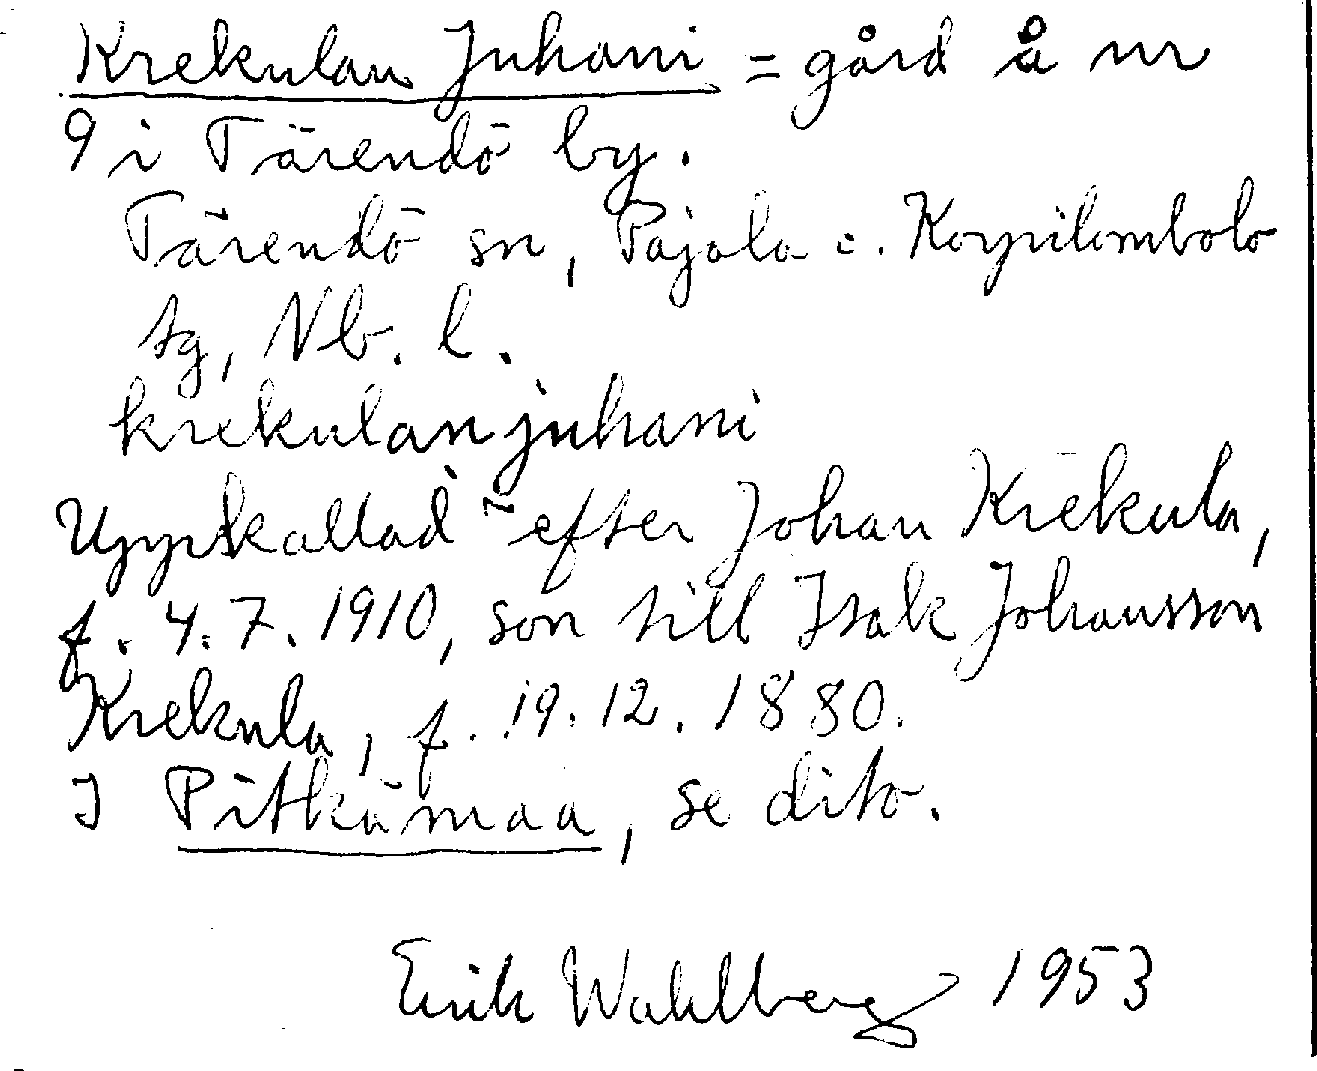 Krekulan Juhani = gård å nr
9 i Tärendö by.
Tärendö sn, Pajala o. Korpilombolo
tg, Nb. l.
krekulan juhani
Uppkallad efter Johan Krekula,
f. 4.7.1910, son till Isak Johansson
Krekula, f. 19.12.1880.
I Pitkämaa, se dito.
Erik Wahlberg 1953